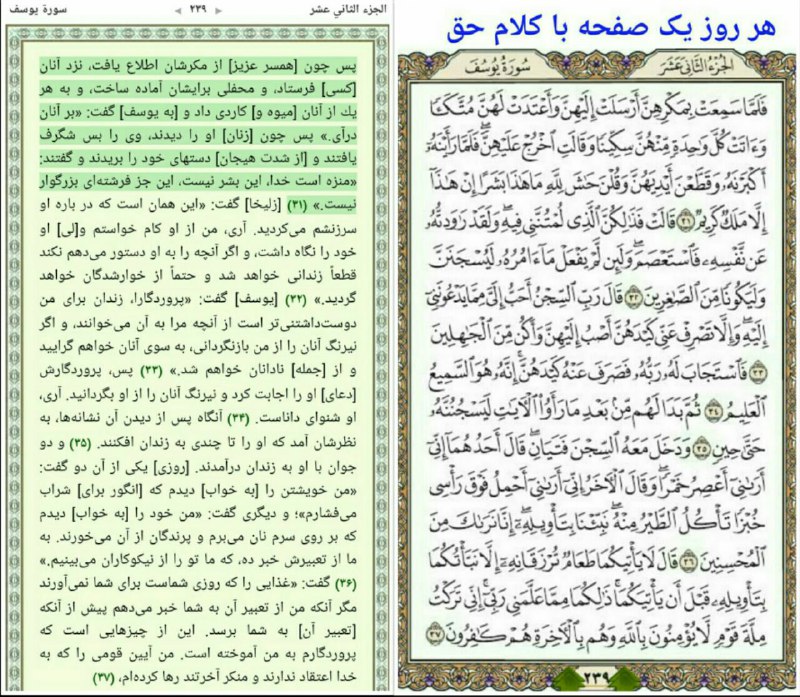 هر روز یک صفحه با کلام حق
الجزء الثاني عشر
سورة يوسف
فَلَمَّا سَمِعَتْ بِمَكْرِهِنَّ أَرْسَلَتْ إِلَيْهِنَّ وَأَعْتَدَتْ لَهُنَّ مُتَّكَـًٔا
وَءَاتَتْ كُلَّ وَٰحِدَةٍ مِّنْهُنَّ سِكِّينًا وَقَالَتِ ٱخْرُجْ عَلَيْهِنَّ ۖ فَلَمَّا رَأَيْنَهُۥٓ
أَكْبَرْنَهُۥ وَقَطَّعْنَ أَيْدِيَهُنَّ وَقُلْنَ حَٰشَ لِلَّهِ مَا هَٰذَا بَشَرًا إِنْ هَٰذَآ
إِلَّا مَلَكٌ كَرِيمٌ ٣١ قَالَتْ فَذَٰلِكُنَّ ٱلَّذِى لُمْتُنَّنِى فِيهِ ۖ وَلَقَدْ رَٰوَدتُّهُۥ
عَن نَّفْسِهِۦ فَٱسْتَعْصَمَ ۖ وَلَئِن لَّمْ يَفْعَلْ مَآ ءَامُرُهُۥ لَيُسْجَنَنَّ
وَلَيَكُونًا مِّنَ ٱلصَّٰغِرِينَ ٣٢ قَالَ رَبِّ ٱلسِّجْنُ أَحَبُّ إِلَىَّ مِمَّا يَدْعُونَنِىٓ
إِلَيْهِ ۖ وَإِلَّا تَصْرِفْ عَنِّى كَيْدَهُنَّ أَصْبُ إِلَيْهِنَّ وَأَكُن مِّنَ ٱلْجَٰهِلِينَ
٣٣ فَٱسْتَجَابَ لَهُۥ رَبُّهُۥ فَصَرَفَ عَنْهُ كَيْدَهُنَّ ۚ إِنَّهُۥ هُوَ ٱلسَّمِيعُ
ٱلْعَلِيمُ ٣٤ ثُمَّ بَدَا لَهُم مِّنۢ بَعْدِ مَا رَأَوُا۟ ٱلْءَايَٰتِ لَيَسْجُنُنَّهُۥ
حَتَّىٰ حِينٍ ٣٥ وَدَخَلَ مَعَهُ ٱلسِّجْنَ فَتَيَانِ ۖ قَالَ أَحَدُهُمَآ إِنِّىٓ
أَرَىٰنِىٓ أَعْصِرُ خَمْرًا ۖ وَقَالَ ٱلْءَاخَرُ إِنِّىٓ أَرَىٰنِىٓ أَحْمِلُ فَوْقَ رَأْسِى
خُبْزًا تَأْكُلُ ٱلطَّيْرُ مِنْهُ ۖ نَبِّئْنَا بِتَأْوِيلِهِۦٓ ۖ إِنَّا نَرَىٰكَ مِنَ
ٱلْمُحْسِنِينَ ٣٦ قَالَ لَا يَأْتِيكُمَا طَعَامٌ تُرْزَقَانِهِۦٓ إِلَّا نَبَّأْتُكُمَا
بِتَأْوِيلِهِۦ قَبْلَ أَن يَأْتِيَكُمَا ۚ ذَٰلِكُمَا مِمَّا عَلَّمَنِى رَبِّىٓ ۚ إِنِّى تَرَكْتُ
مِلَّةَ قَوْمٍ لَّا يُؤْمِنُونَ بِٱللَّهِ وَهُم بِٱلْءَاخِرَةِ هُمْ كَٰفِرُونَ ٣٧
٢٣٩
الجزء الثاني عشر
٢٣٩
سورة يوسف
پس چون [همسر عزیز] از مکرشان اطلاع یافت، نزد آنان
[کسی] فرستاد، و محفلی برایشان آماده ساخت، و به هر
یك از آنان [میوه و] کاردی داد و [به یوسف] گفت: «بر آنان
درآی.» پس چون [زنان] او را دیدند، وی را بس شگرف
یافتند و [از شدت هیجان] دستهای خود را بریدند و گفتند:
«منزه است خدا، این بشر نیست، این جز فرشته‌ای بزرگوار
نیست.» (۳۱) [زلیخا] گفت: «این همان است که در باره او
سرزنشم می‌کردید. آری، من از او کام خواستم و[لی] او
خود را نگاه داشت، و اگر آنچه را به او دستور می‌دهم نکند
قطعاً زندانی خواهد شد و حتماً از خوارشدگان خواهد
گردید.» (۳۲) [یوسف] گفت: «پروردگارا، زندان برای من
دوست‌داشتنی‌تر است از آنچه مرا به آن می‌خوانند، و اگر
نیرنگ آنان را از من بازنگردانی، به سوی آنان خواهم گرایید
و از [جمله] نادانان خواهم شد.» (۳۳) پس، پروردگارش
[دعای] او را اجابت کرد و نیرنگ آنان را از او بگردانید. آری،
او شنوای داناست. (۳۴) آنگاه پس از دیدن آن نشانه‌ها، به
نظرشان آمد که او را تا چندی به زندان افکنند. (۳۵) و دو
جوان با او به زندان درآمدند. [روزی] یکی از آن دو گفت:
«من خویشتن را [به خواب] دیدم که [انگور برای] شراب
می‌فشارم»؛ و دیگری گفت: «من خود را [به خواب] دیدم
که بر روی سرم نان می‌برم و پرندگان از آن می‌خورند. به
ما از تعبیرش خبر ده، که ما تو را از نیکوکاران می‌بینیم.»
(۳۶) گفت: «غذایی را که روزی شماست برای شما نمی‌آورند
مگر آنکه من از تعبیر آن به شما خبر می‌دهم پیش از آنکه
[تعبیر آن] به شما برسد. این از چیزهایی است که
پروردگارم به من آموخته است. من آیین قومی را که به
خدا اعتقاد ندارند و منکر آخرتند رها کرده‌ام، (۳۷)